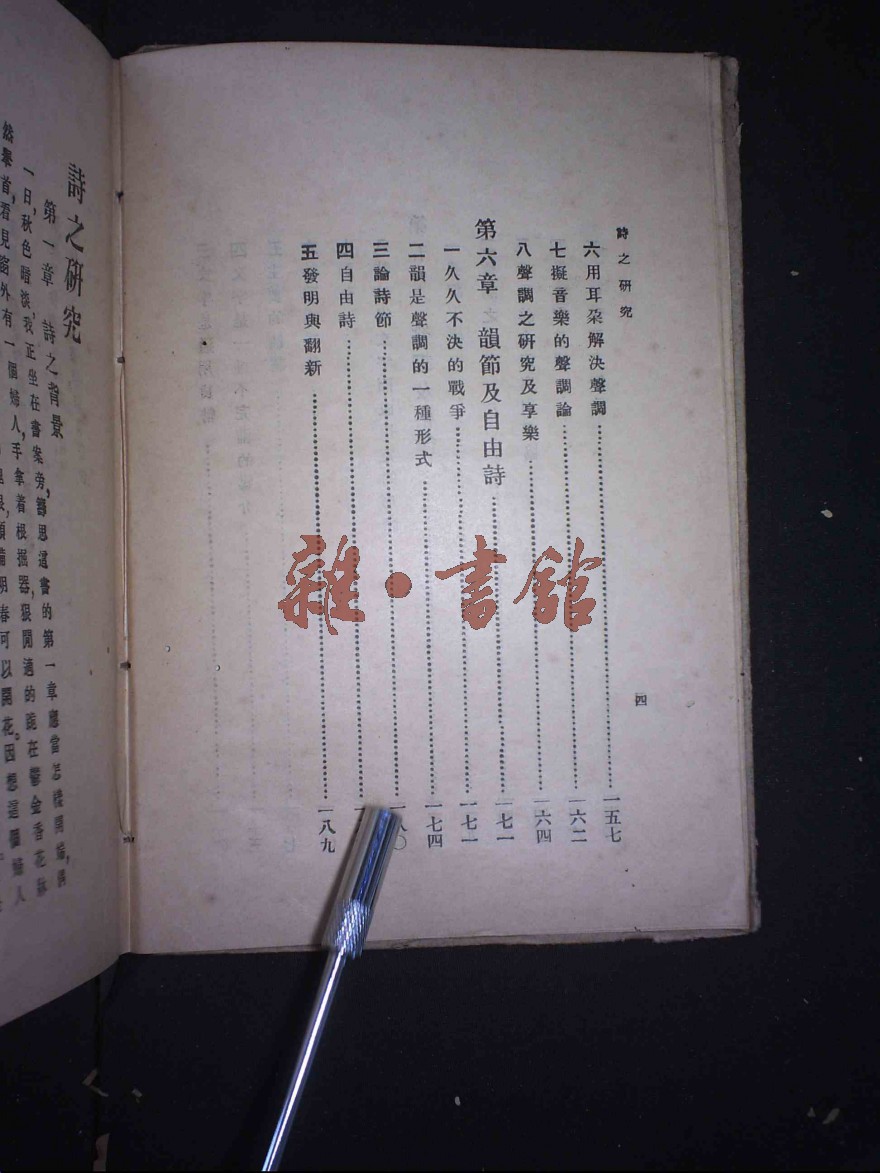 詩之研究
四
六 用耳朶解決聲調 一五七
七 擬音樂的聲調論 一六二
八 聲調之研究及享樂 一六四
第六章 韻節及自由詩 一七一
一 久久不決的戰爭 一七一
二 韻是聲調的一種形式 一七四
三 論詩節 一八〇
四 自由詩
五 發明與翻新 一八九
詩之研究
第一章 詩之背景
一日，秋色暗淡，我正坐在書案旁，鄉思這書的第一章應當怎樣開端，偶
然擧首，看見窗外有一個婦人，手拿着根掘器，狠閒適的能在鬱金香花脉
明春可以開花。因想這個婦人
雜·書館